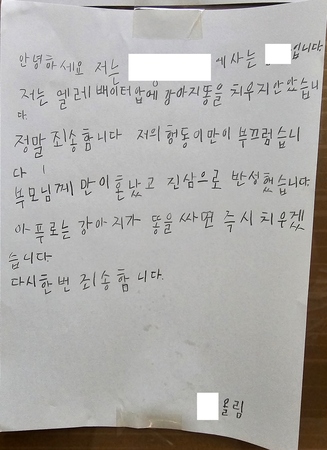 안녕하세요 저는 에사는 입니다
저는 엘레배이터앞에 강아지똥을 치우지안았습니
다.
정말죄송함니다 저의행동이만이 부끄럼습니
다!
부모님께 만이혼났고 진심으로 반성했습니다.
아푸로는 강아지가 똥을 싸면 즉시 치우겠
습니다
다시한번 죄송함니다.
올림